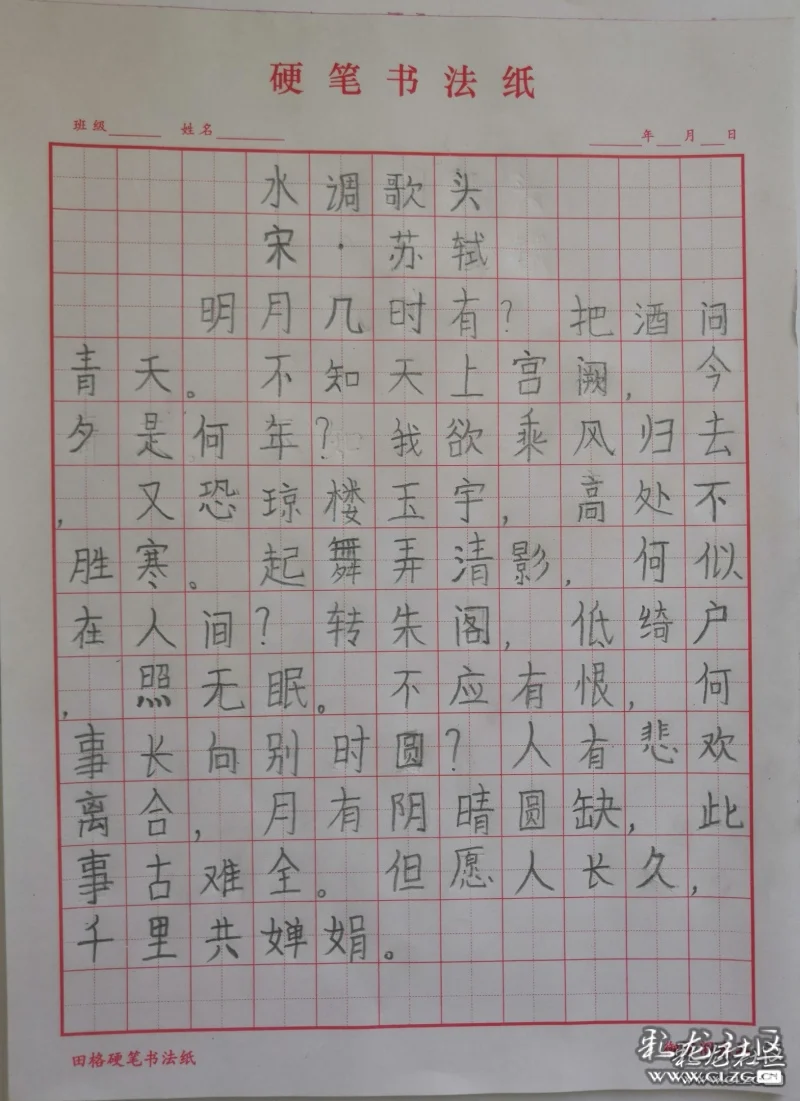 硬笔书法纸
班级 姓名 年 月 日
水调歌头
宋·苏轼
明月几时有？把酒问
青天。不知天上宫阙，今
夕是何年？我欲乘风归去
，又恐琼楼玉宇，高处不
胜寒。起舞弄清影，何似
在人间？转朱阁，低绮户
，照无眠。不应有恨，何
事长向别时圆？人有悲欢
离合，月有阴晴圆缺，此
事古难全。但愿人长久，
千里共婵娟。
田格硬笔书法纸
化龙社区
www.CLZG.CN